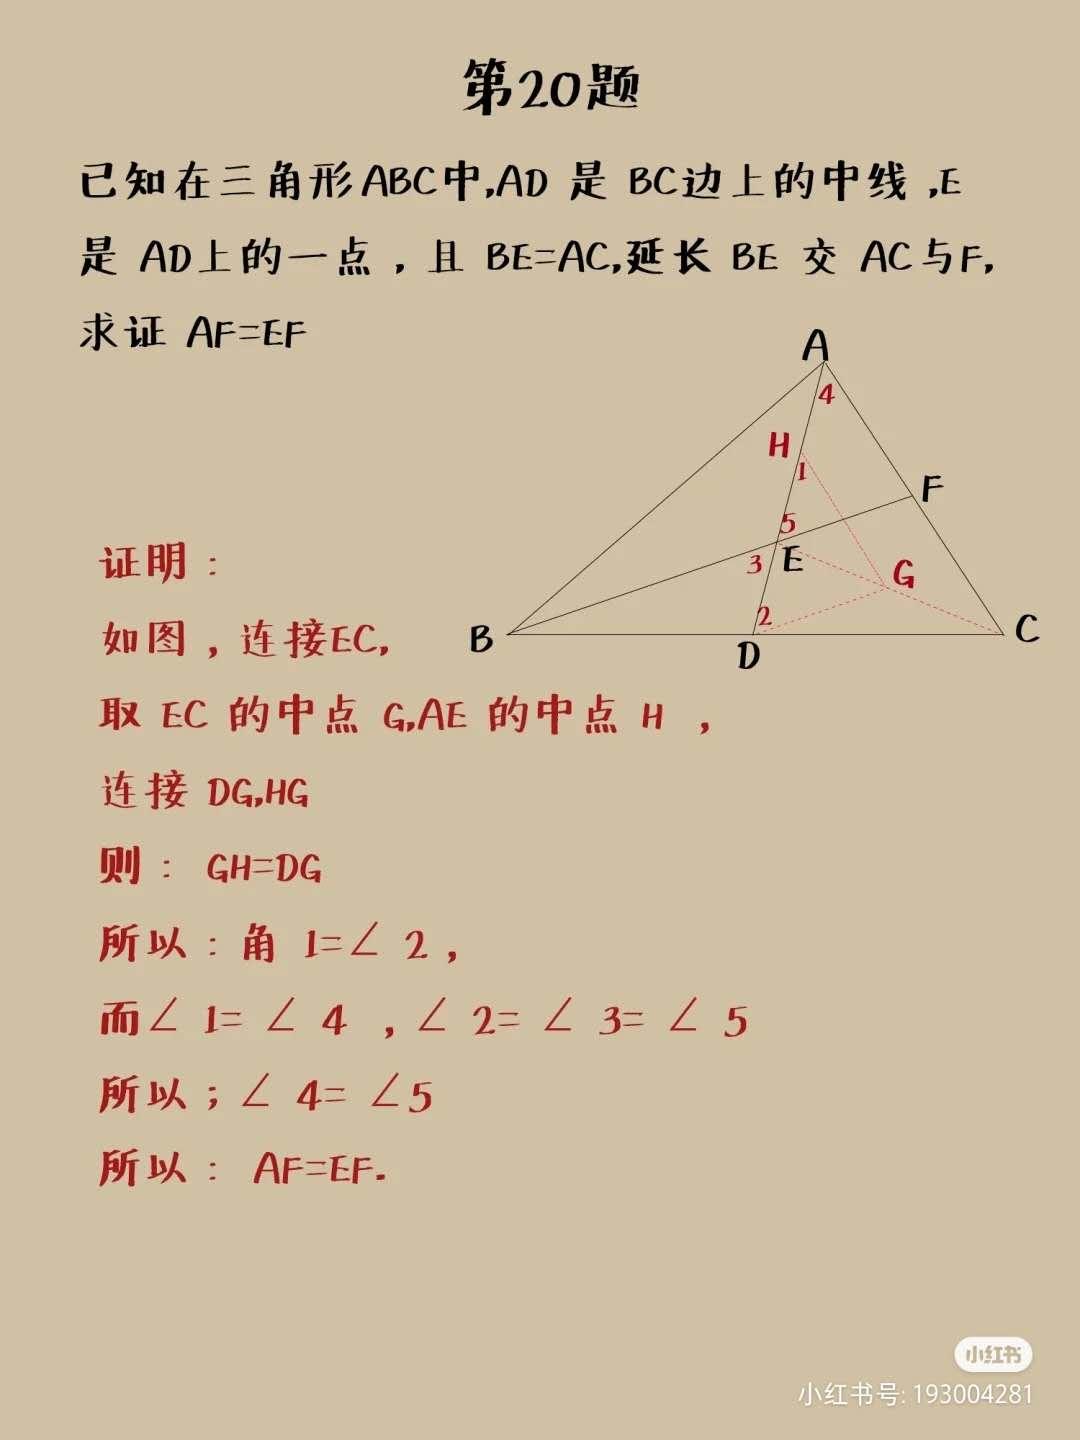 第20题
已知在三角形ABC中,AD 是 BC边上的中线 ,E
是 AD上的一点 , 且 BE=AC,延长 BE 交 AC与F,
求证 AF=EF
A
4
H
1
F
5
E
3
G
2
B
D
C
证明 :
如图 , 连接EC,
取 EC 的中点 G,AE 的中点 H ,
连接 DG,HG
则 : GH=DG
所以 : 角 1=∠ 2 ,
而∠ 1= ∠ 4 , ∠ 2= ∠ 3= ∠ 5
所以 ; ∠ 4= ∠5
所以 : AF=EF.
小红书
小红书号: 193004281